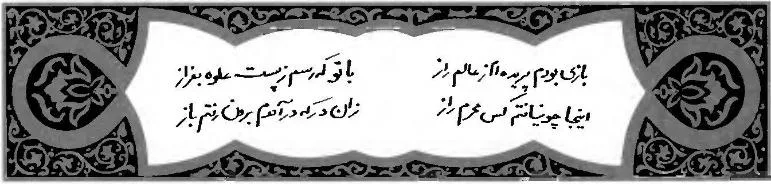 بازی بودم پریده از عالم راز با تو که رسم ز پست علوه بفراز
اینجا چو نیافتم کس محرم راز زان در که در آمدم برون رفتم باز